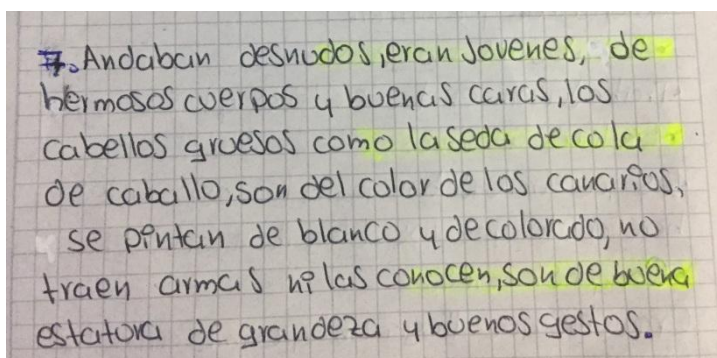 7. Andaban desnudos, eran Jovenes, de
hermosos cuerpos y buenas caras, los
cabellos gruesos como la seda de cola
de caballo, son del color de los canarios,
se pintan de blanco y de colorado, no
traen armas ni las conocen, son de buena
estatura de grandeza y buenos gestos.